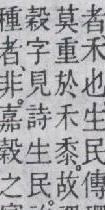 者禾也生民傳
莫重於禾黍故
穀字見詩生民
種者非嘉穀之